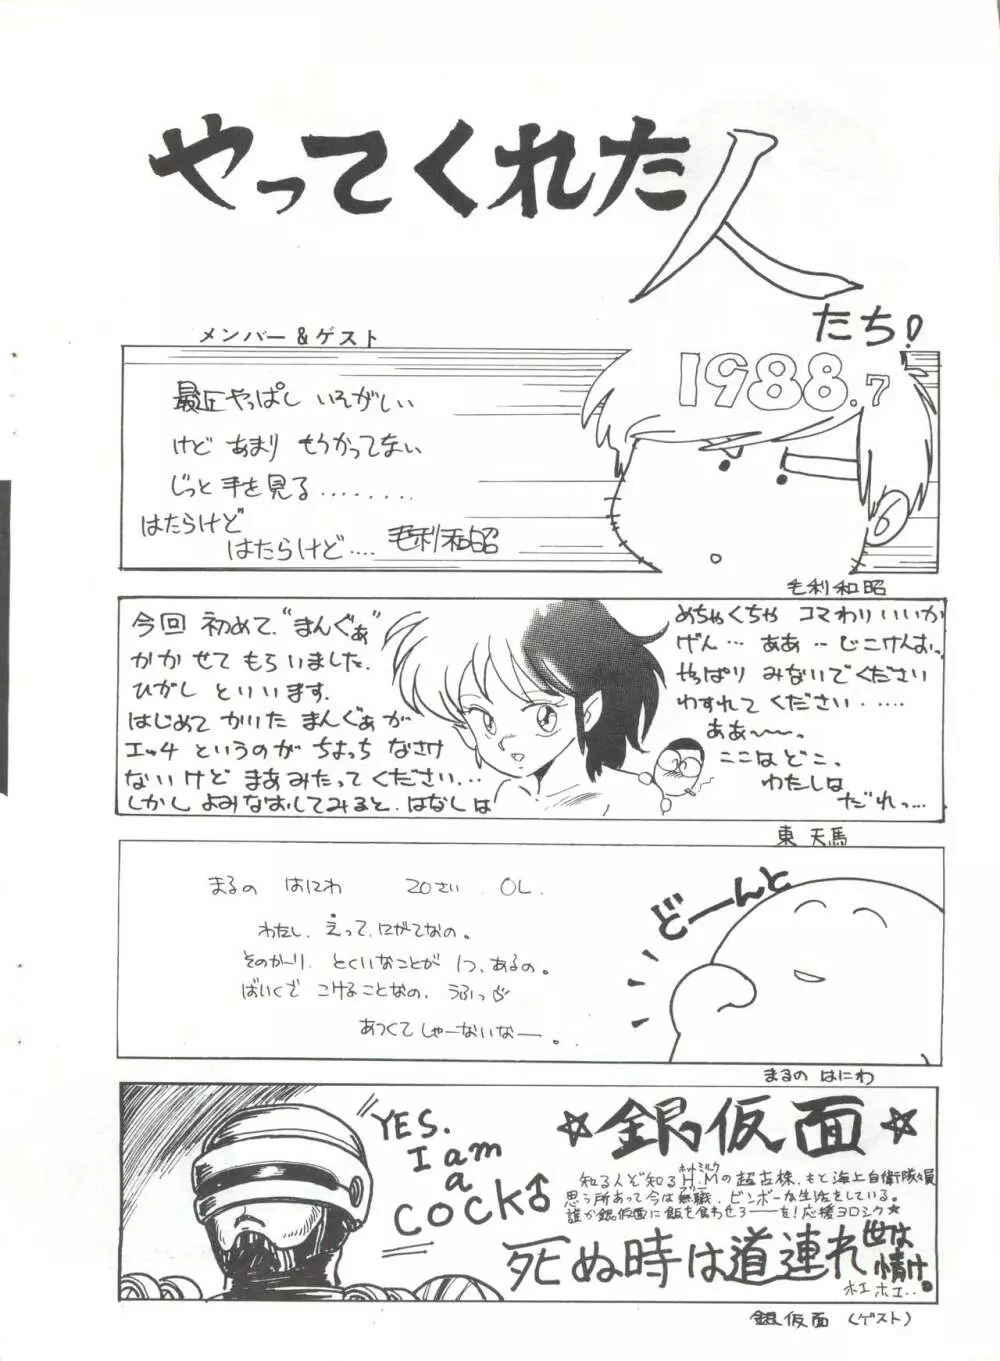 やってくれた人
たち!
1988.7
メンバー&ゲスト
最圧やっぱし いそがしい
けど あまり もうかってない
じっと手を見る........
はたらけど
はたらけど....
毛利和昭
毛利和昭
今回 初めて、"まんぐぁ"
かかせて もらいました.
ひがし といいます.
はじめて かいた まんぐぁが
エッチ というのが ちょっち なさけ
ないけど まあみたってください...
しかし よみなおしてみると、はなしは
めちゃくちゃ コマわりいいか
げん... ああ... じこけんおっ
やっぱり みないでください
わすれて ください.....
ああ〜〜。
ここは どこ、
わたしは
だれっ...
東 天馬
まるの はにわ 20さい. OL.
わたし、えって、にがてなの。
そのかーり、とくいなことが 1つ、あるの。
ばいくで こけることなの、うふっ♡
あつくて しゃーないなー。
どーんと
まるの はにわ
YES.
I am
a
COCK♂
☆銀仮面☆
知る人ぞ知るH.Mの超古株、もと海上自衛隊員
ホットミルク
思う所あって今は無職、ビンボーな生活をしている。
フリー
誰か銀仮面に飯を食わせろーーを!応援ヨロシク☆
死ぬ時は道連れ
世は
情け。
ホエホエ..
銀仮面 (ゲスト)